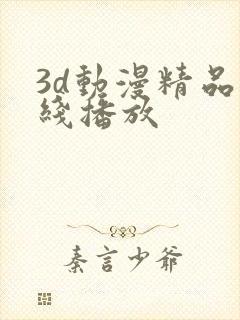 3d動漫精品
綫播放
秦言少爺